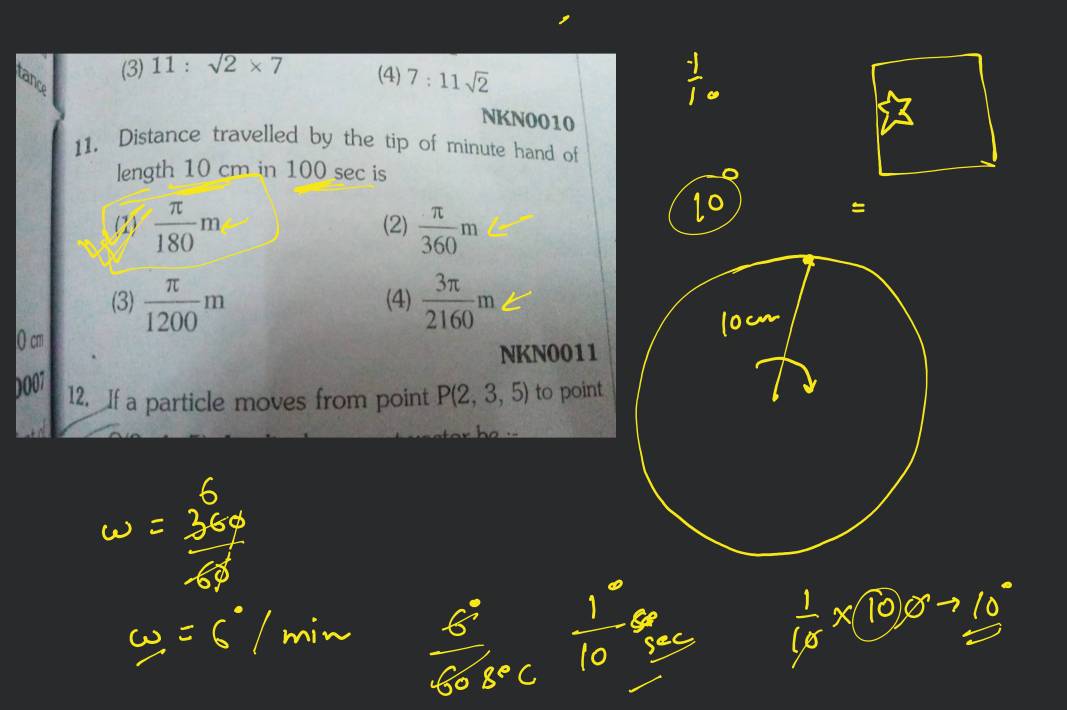 tance
(3) 11 : √2 × 7
(4) 7 : 11√2
NKN0010
11. Distance travelled by the tip of minute hand of
length 10 cm in 100 sec is
(1) π/180 m
(2) π/360 m
(3) π/1200 m
(4) 3π/2160 m
NKN0011
0 cm
0007
12. If a particle moves from point P(2, 3, 5) to point
1/1°
10° =
10cm
6
ω = 360/60
ω = 6°/min
6°/60 sec
1°/10 sec
1/10 × 100 → 10°